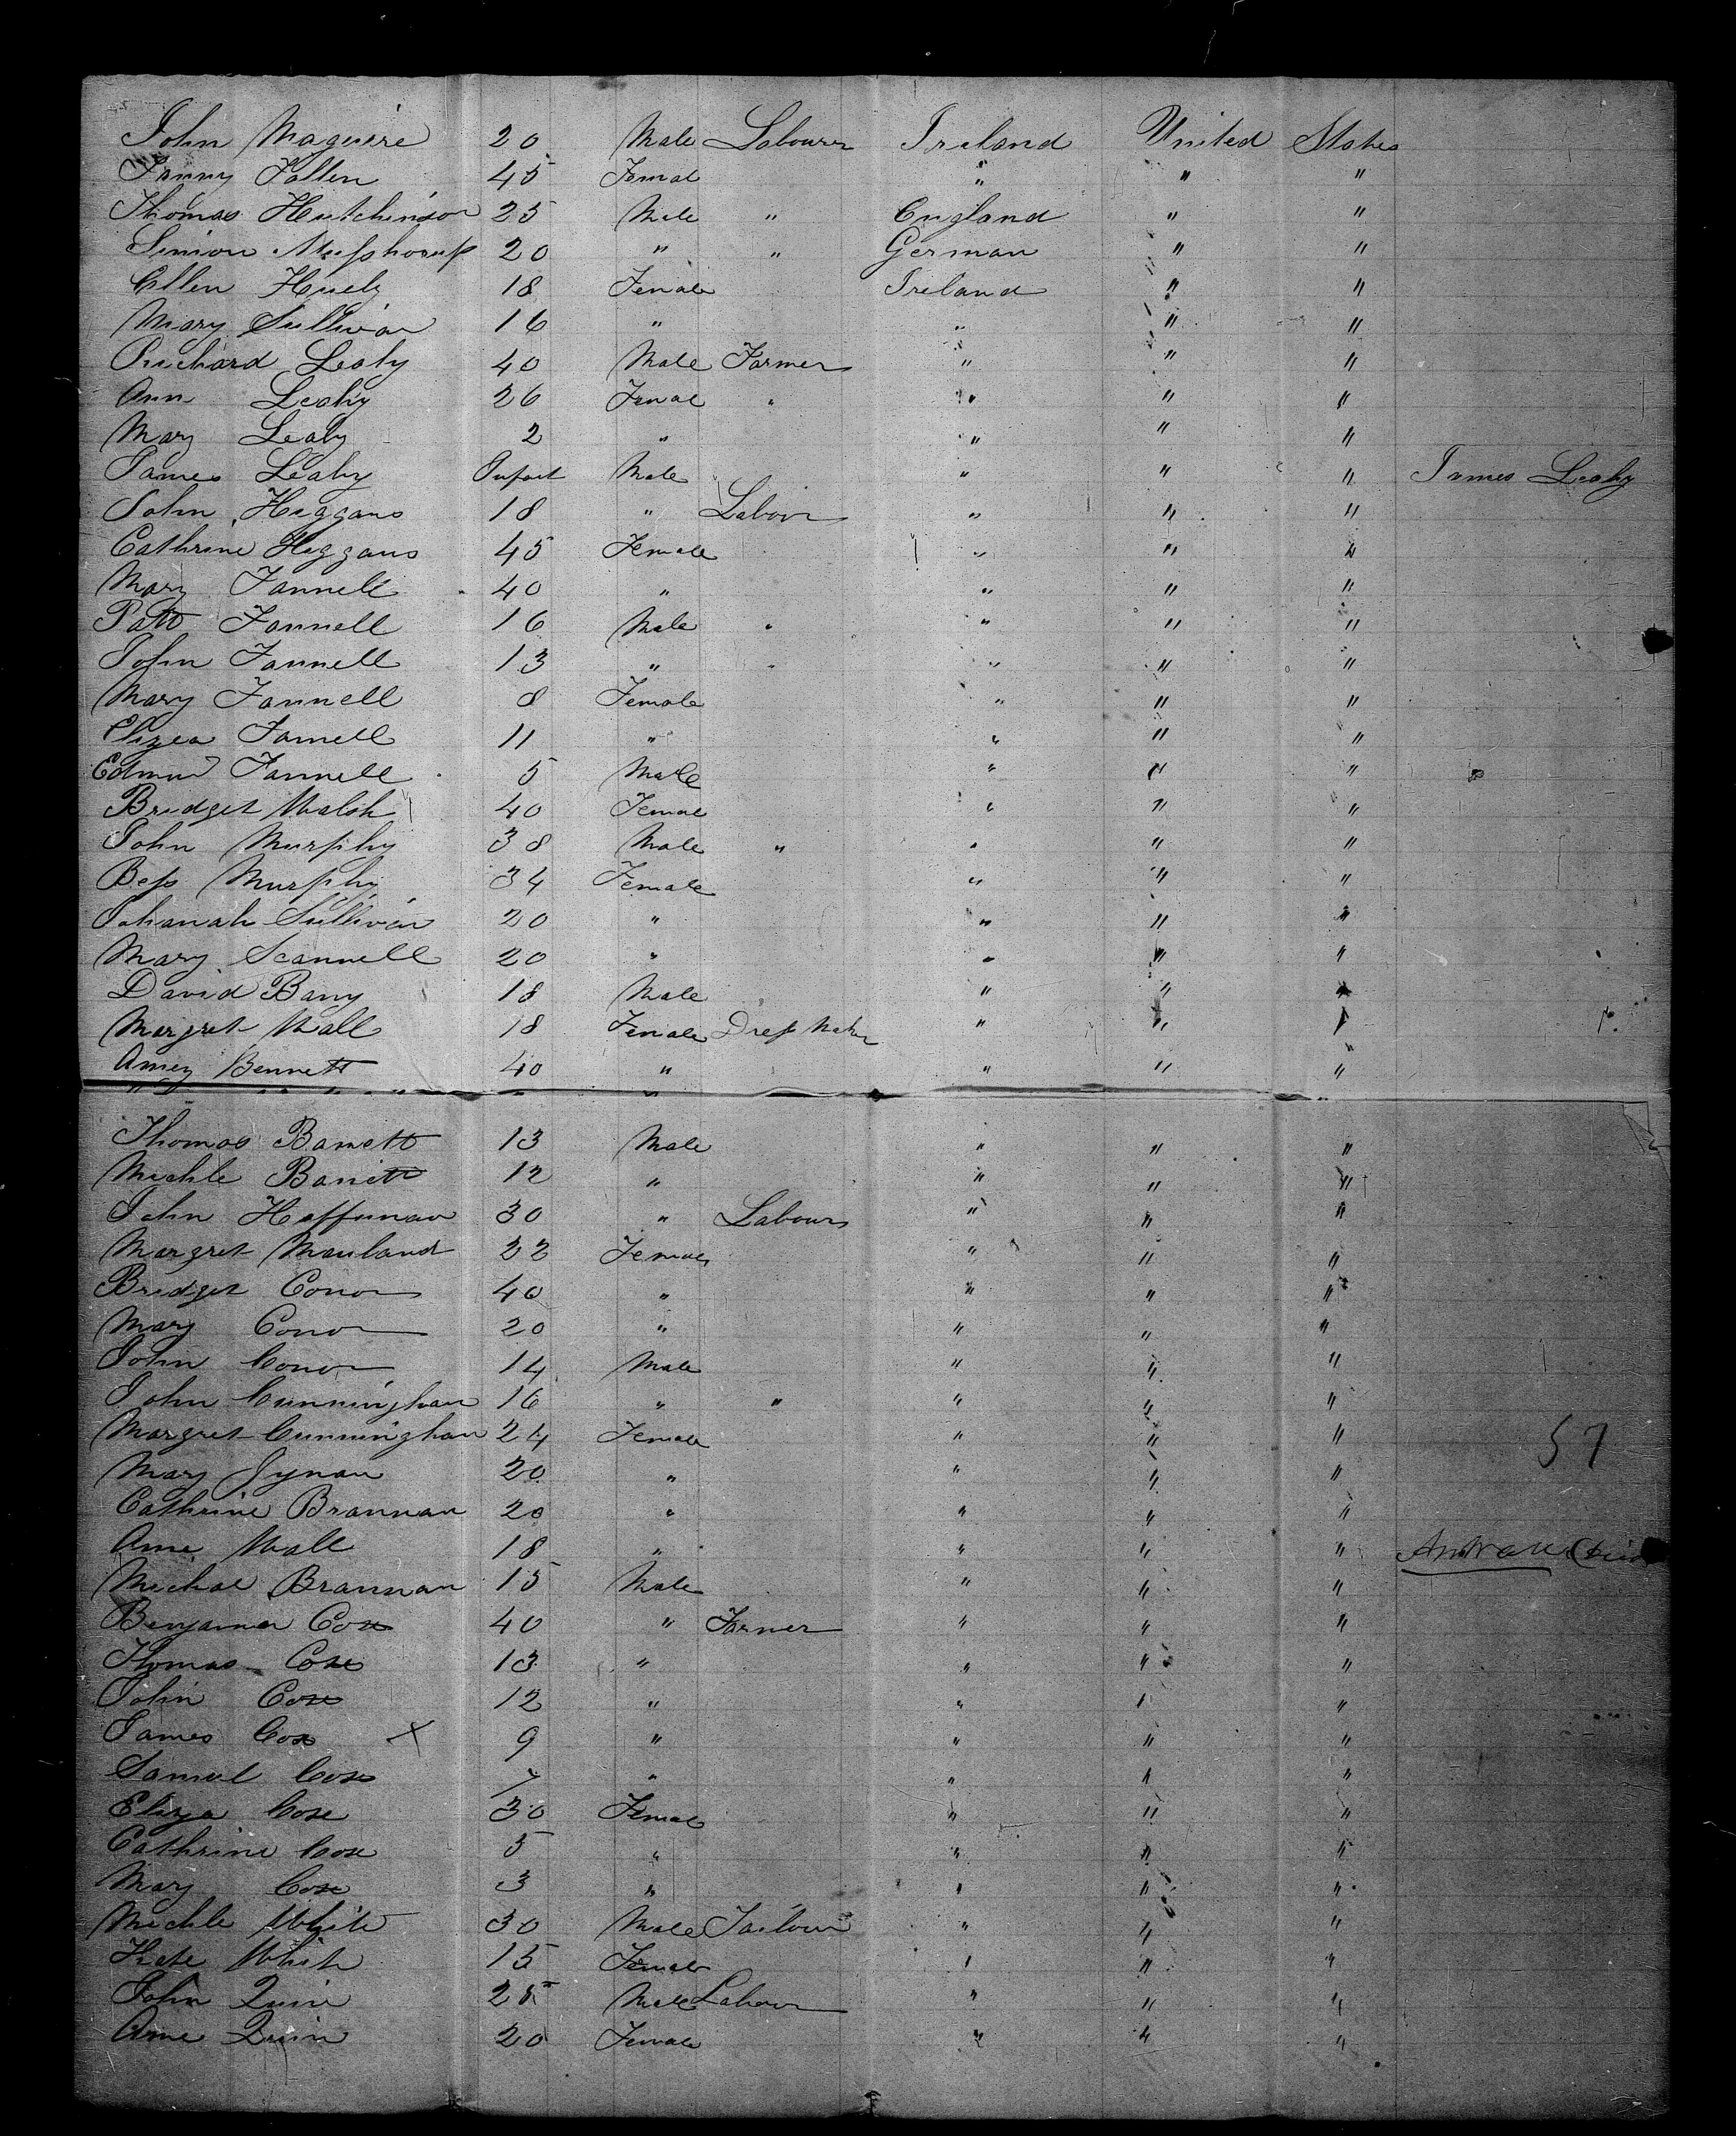 John Maguire 20 Male Labourer Ireland United States
Fanny Fallen 45 Femal " " "
Thomas Hutchinson 25 Male " England " "
Simion 20 " " German " "
Ellen 18 Female Ireland " "
Mary Sullivan 16 " " " "
Richard Leahy 40 Male Farmer " " "
Ann Leahy 26 Femal " " " "
Mary Leahy 2 " " " "
James Leahy Infant Male " " " James Leahy
John Higgans 18 " Labour " " "
Cathrine Higgans 45 Female " " "
Mary Fannell 40 " " " "
Patt Fannell 16 Male " " " "
John Fannell 13 " " " " "
Mary Fannell 8 Female " " "
Elizea Fannell 11 " " " "
Edmund Fannell 5 Male " " "
Bridget Walsh 40 Female " " "
John Murphy 38 Male " " " "
Bess Murphy 34 Female " " "
Johanah Sullivan 20 " " " "
Mary Scannell 20 " " " "
David Barry 18 Male " " "
Margret Wall 18 Female Dress Maker " " "
Amey Bennett 40 " " " "
Thomas Barnett 13 Male " " "
Michle Barnett 12 " " " "
John Heffunan 30 " Labour " " "
Margret 22 Female " " "
Bridget Conor 40 " " " "
Mary Conor 20 " " " "
John Conor 14 Male " " "
John Cunningham 16 " " " " "
Margret Cunningham 24 Female " " "
57
Mary Gynan 20 " " " "
Cathrine Brannan 20 " " " "
Ame Wall 18 " " " " Ann Wall
Michal Brannan 15 Male " " "
Benjamin Cox 40 " Farmer " " "
Thomas Cox 13 " " " "
John Cox 12 " " " "
James Cox X 9 " " " "
Samuel Cox 7 " " " "
Eliza Cox 30 Femal " " "
Cathrine Cox 5 " " " "
Mary Cox 3 " " " "
Michle White 30 Male Tailour " " "
Kate White 15 Female " " "
John Quin 25 Male Labour " " "
Ame Quin 20 Female " " "